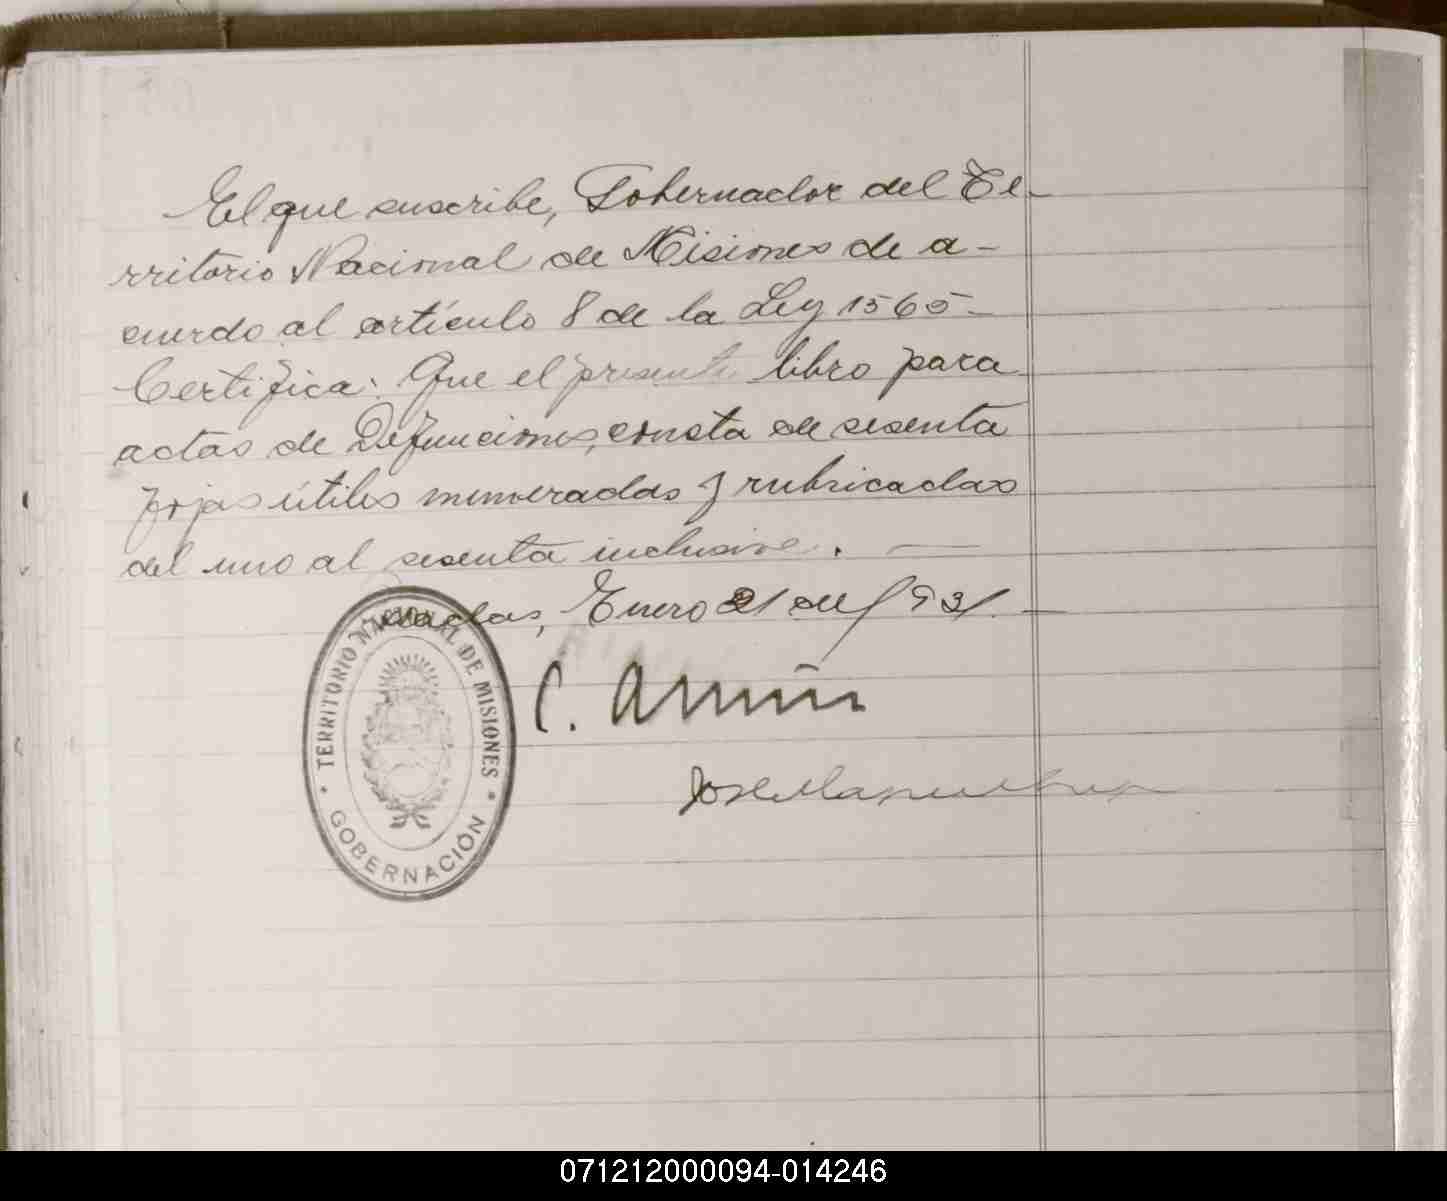 El que suscribe, Gobernador del Te-
rritorio Nacional de Misiones de a-
cuerdo al artículo 8 de la Ley 1565-
Certifica: Que el presente libro para
actas de Defunciones, consta de sesenta
fojas útiles numeradas y rubricadas
del uno al sesenta inclusive. —
Posadas, Enero 21 de 1931. —
C. Acuña
TERRITORIO NACIONAL DE MISIONES
GOBERNACIÓN
071212000094-014246